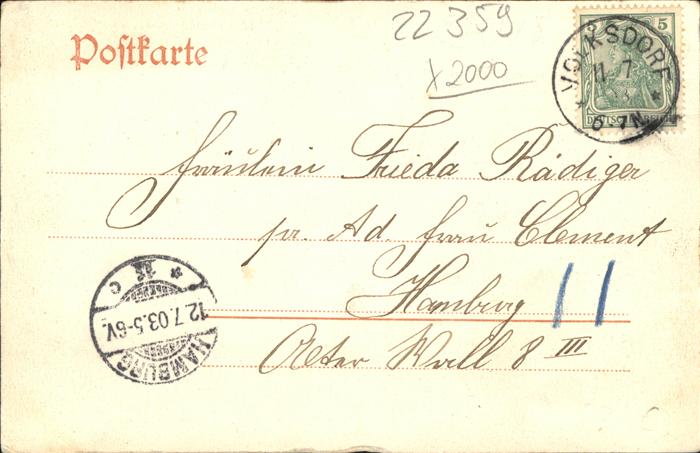 Postkarte
22359
x2000
5
VOLKSDORF
11 7
6-7N
DEUTSCHES REICH
Fräulein Frieda Rädiger
pr. Ad. Frau Clement
Hamburg 11
Alter Wall 8 III
HAMBURG
12.7.03.5-6V.
C